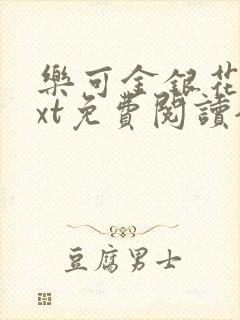 樂可金銀花
xt免費閱讀
豆腐男士